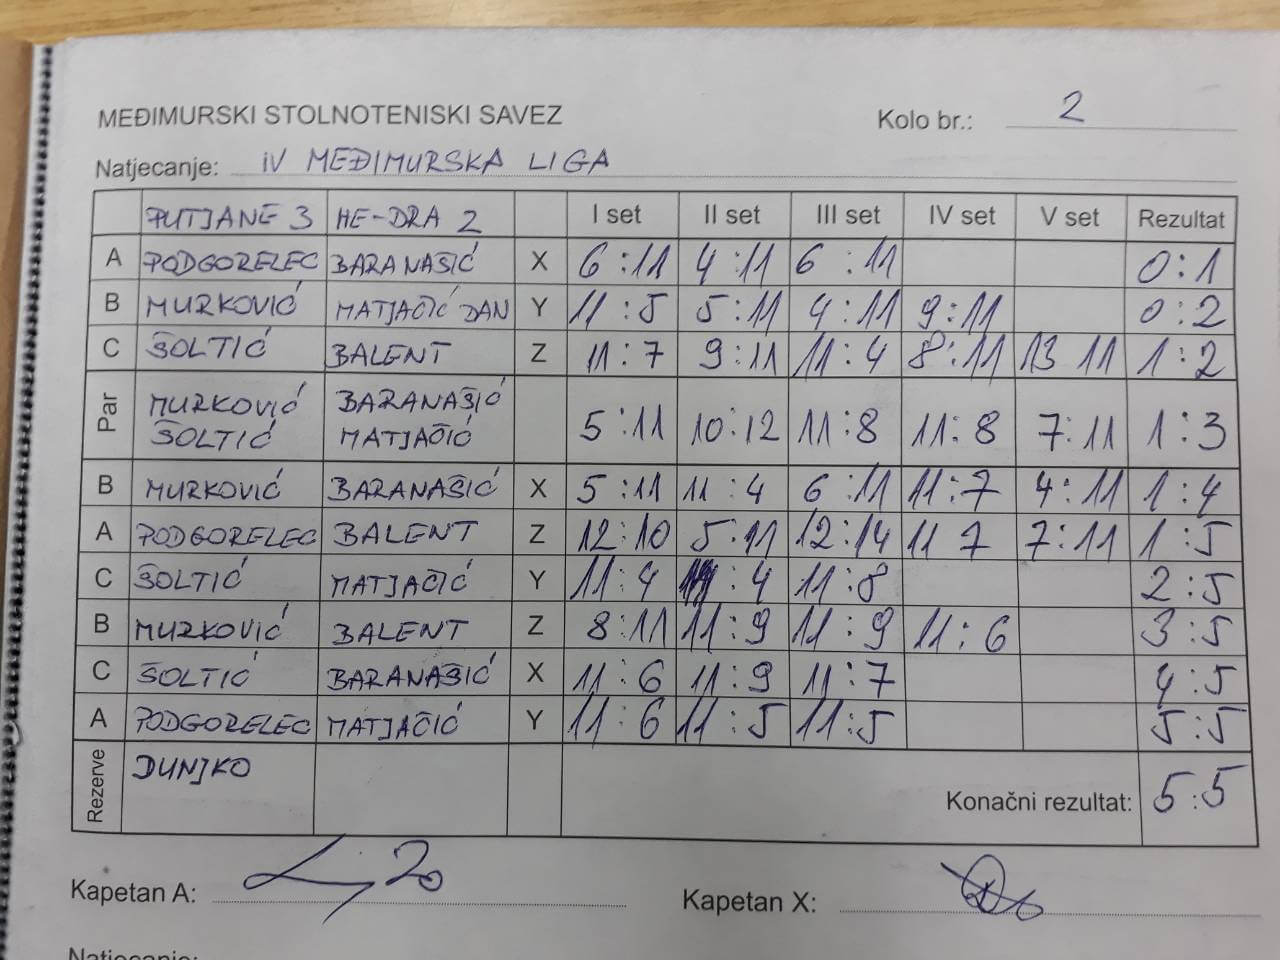 MEĐIMURSKI STOLNOTENISKI SAVEZ
Kolo br.: 2
Natjecanje: IV MEĐIMURSKA LIGA
PUTJANE 3 HE-DRA 2 I set II set III set IV set V set Rezultat
A PODGORELEC BARANAŠIĆ X 6:11 4:11 6:11 0:1
B MURKOVIĆ MATJAČIĆ DAN Y 11:5 5:11 4:11 9:11 0:2
C ŠOLTIĆ BALENT Z 11:7 9:11 11:4 8:11 13 11 1:2
Par MURKOVIĆ BARANAŠIĆ
ŠOLTIĆ MATJAČIĆ 5:11 10:12 11:8 11:8 7:11 1:3
B MURKOVIĆ BARANAŠIĆ X 5:11 11:4 6:11 11:7 4:11 1:4
A PODGORELEC BALENT Z 12:10 5:11 12:14 11 7 7:11 1:5
C ŠOLTIĆ MATJAČIĆ Y 11:4 11:4 11:8 2:5
B MURKOVIĆ BALENT Z 8:11 11:9 11:9 11:6 3:5
C ŠOLTIĆ BARANAŠIĆ X 11:6 11:9 11:7 4:5
A PODGORELEC MATJAČIĆ Y 11:6 11:5 11:5 5:5
Rezerve DUNJKO
Konačni rezultat: 5:5
Kapetan A:
Kapetan X:
Natjecanje: